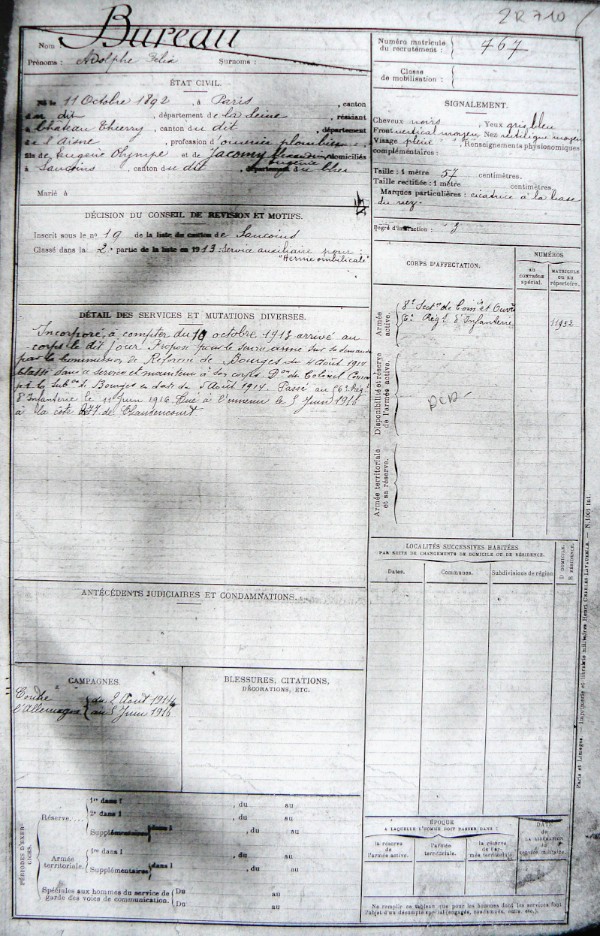 2R710
Nom Bureau
Prénoms : Adolphe Surnoms :
ÉTAT CIVIL.
Né le 11 Octobre 1892, à Paris, canton
du dit, département de la Seine, résidant
à Château Thierry, canton du dit, département
de l'Aisne, profession d'ouvrier plombier
fils de Eugène Olympe et de Jacomy domiciliés
à Sancoins, canton du dit
Marié à
DÉCISION DU CONSEIL DE RÉVISION ET MOTIFS.
Inscrit sous le n° 19 de la liste du canton de Sancoins
Classé dans la 2e partie de la liste en 1913 : Service auxiliaire pour :
"Hernie ombilicale"
DÉTAIL DES SERVICES ET MUTATIONS DIVERSES.
Incorporé à compter du 10 octobre 1913 arrivé au
corps le dit jour. Proposé pour le service armé sur sa demande
par la Commission de Réforme de Bourges du 4 Août 1914
Classé dans le service et maintenu à son corps. Don du Colonel Comm
la Subdon de Bourges en date du 5 Août 1914. Passé au
d'Infanterie le Juin 1916. Tué à l'ennemi le 8 Juin 1916
à la côte de
ANTÉCÉDENTS JUDICIAIRES ET CONDAMNATIONS.
CAMPAGNES.
Contre du 2 Août 1914
l'Allemagne au 8 Juin 1916
BLESSURES, CITATIONS,
DÉCORATIONS, ETC.
PÉRIODES D'EXERCICES.
Réserve....
1re dans l , du au
2e dans l , du au
Supplémentaire dans l , du au
Armée territoriale.
1re dans l , du au
Supplémentaires dans l , du au
Spéciales aux hommes du service de
garde des voies de communication.
Du au
Du au
Numéro matricule
du recrutement : 467
Classe
de mobilisation :
SIGNALEMENT.
Cheveux noirs, Yeux gris bleu
Front vertical moyen, Nez rectiligne moyen
Visage plein Renseignements physionomiques
complémentaires :
Taille : 1 mètre 57 centimètres.
Taille rectifiée : 1 mètre centimètres.
Marques particulières : cicatrice à la base
du nez
Degré d'instruction : 3
CORPS D'AFFECTATION.
NUMÉROS
au contrôle spécial.
MATRICULE ou au répertoire.
Armée active.
8e Secton de Comis et Ouvrs
Régt d'Infanterie
Disponibilité et réserve de l'armée active.
DCD
Armée territoriale et sa réserve.
LOCALITÉS SUCCESSIVES HABITÉES
PAR SUITE DE CHANGEMENTS DE DOMICILE OU DE RÉSIDENCE.
Dates. Communes. Subdivisions de région
D. DOMICILE.
R. RÉSIDENCE.
ÉPOQUE
A LAQUELLE L'HOMME DOIT PASSER DANS :
la réserve de l'armée active.
l'armée territoriale.
la réserve de l'armée territoriale.
DATE
DE LA LIBÉRATION
du service militaire.
Ne remplir ce tableau que pour les hommes dont les services font
l'objet d'un décompte spécial (engagés, etc.)